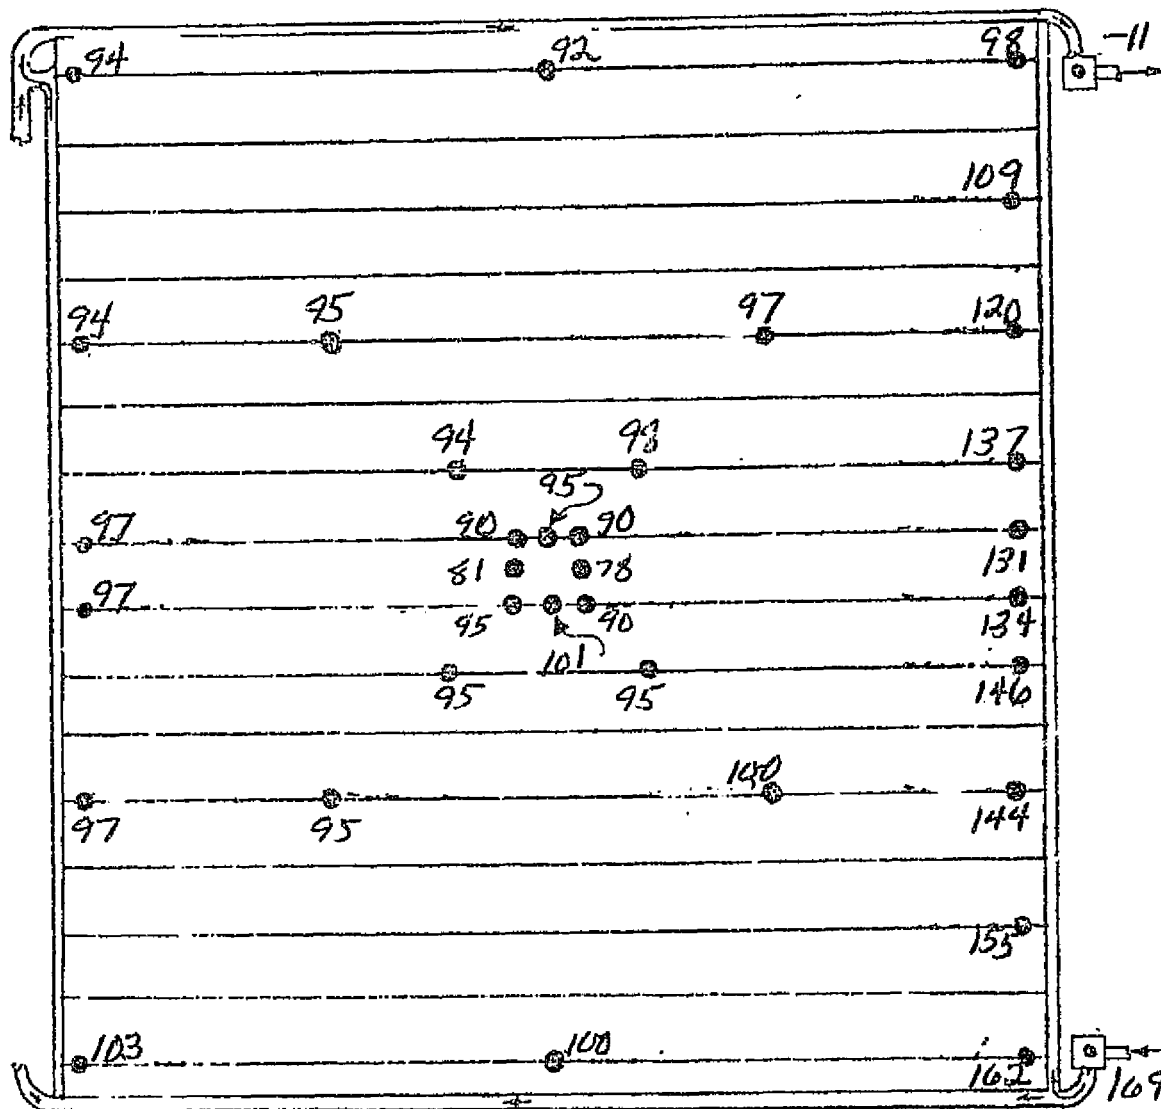 94 92 98 -11
109
94 95 97 120
94 98 137
95
97 90 90 131
81 78
97 95 101 90 134
95 95 146
97 95 100 144
155
103 100 162 169